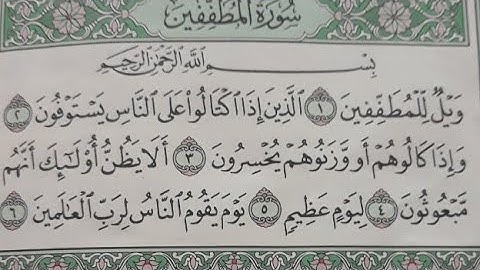 سُورَةُ الْمُطَفِّفِينَ
بِسْمِ اللَّهِ الرَّحْمَٰنِ الرَّحِيمِ
وَيْلٌ لِّلْمُطَفِّفِينَ ١ الَّذِينَ إِذَا اكْتَالُوا عَلَى النَّاسِ يَسْتَوْفُونَ ٢
وَإِذَا كَالُوهُمْ أَو وَّزَنُوهُمْ يُخْسِرُونَ ٣ أَلَا يَظُنُّ أُولَٰئِكَ أَنَّهُم
مَّبْعُوثُونَ ٤ لِيَوْمٍ عَظِيمٍ ٥ يَوْمَ يَقُومُ النَّاسُ لِرَبِّ الْعَالَمِينَ ٦